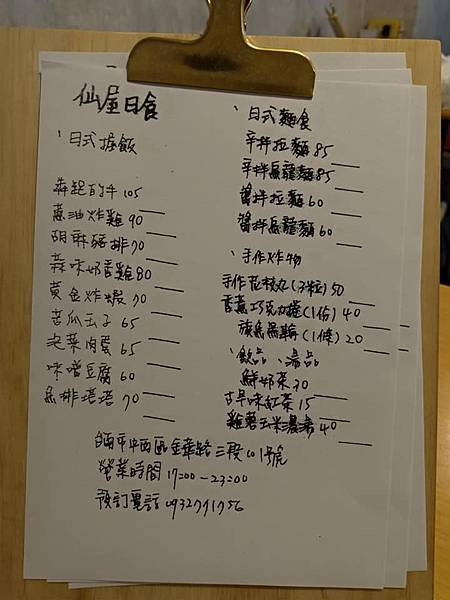 仙屋日食
、日式握飯
犇起的牛 105
蔥油炸雞 90
胡麻豬排 70
蒜味奶香雞 80
黃金炸蝦 70
苦瓜玉子 65
泡菜肉蛋 65
味噌豆腐 60
魚排塔塔 70
、日式麵食
辛拌拉麵 85
辛拌烏龍麵 85
醬拌拉麵 60
醬拌烏龍麵 60
、手作炸物
手作花枝丸(3粒) 50
香蕉巧克力捲(1份) 40
旗魚黑輪(1條) 20
、飲品、湯品
鮮奶茶 30
古早味紅茶 15
雞蓉玉米濃湯 40
台南市中西區金華路三段101號
營業時間 17:00-23:00
預訂電話